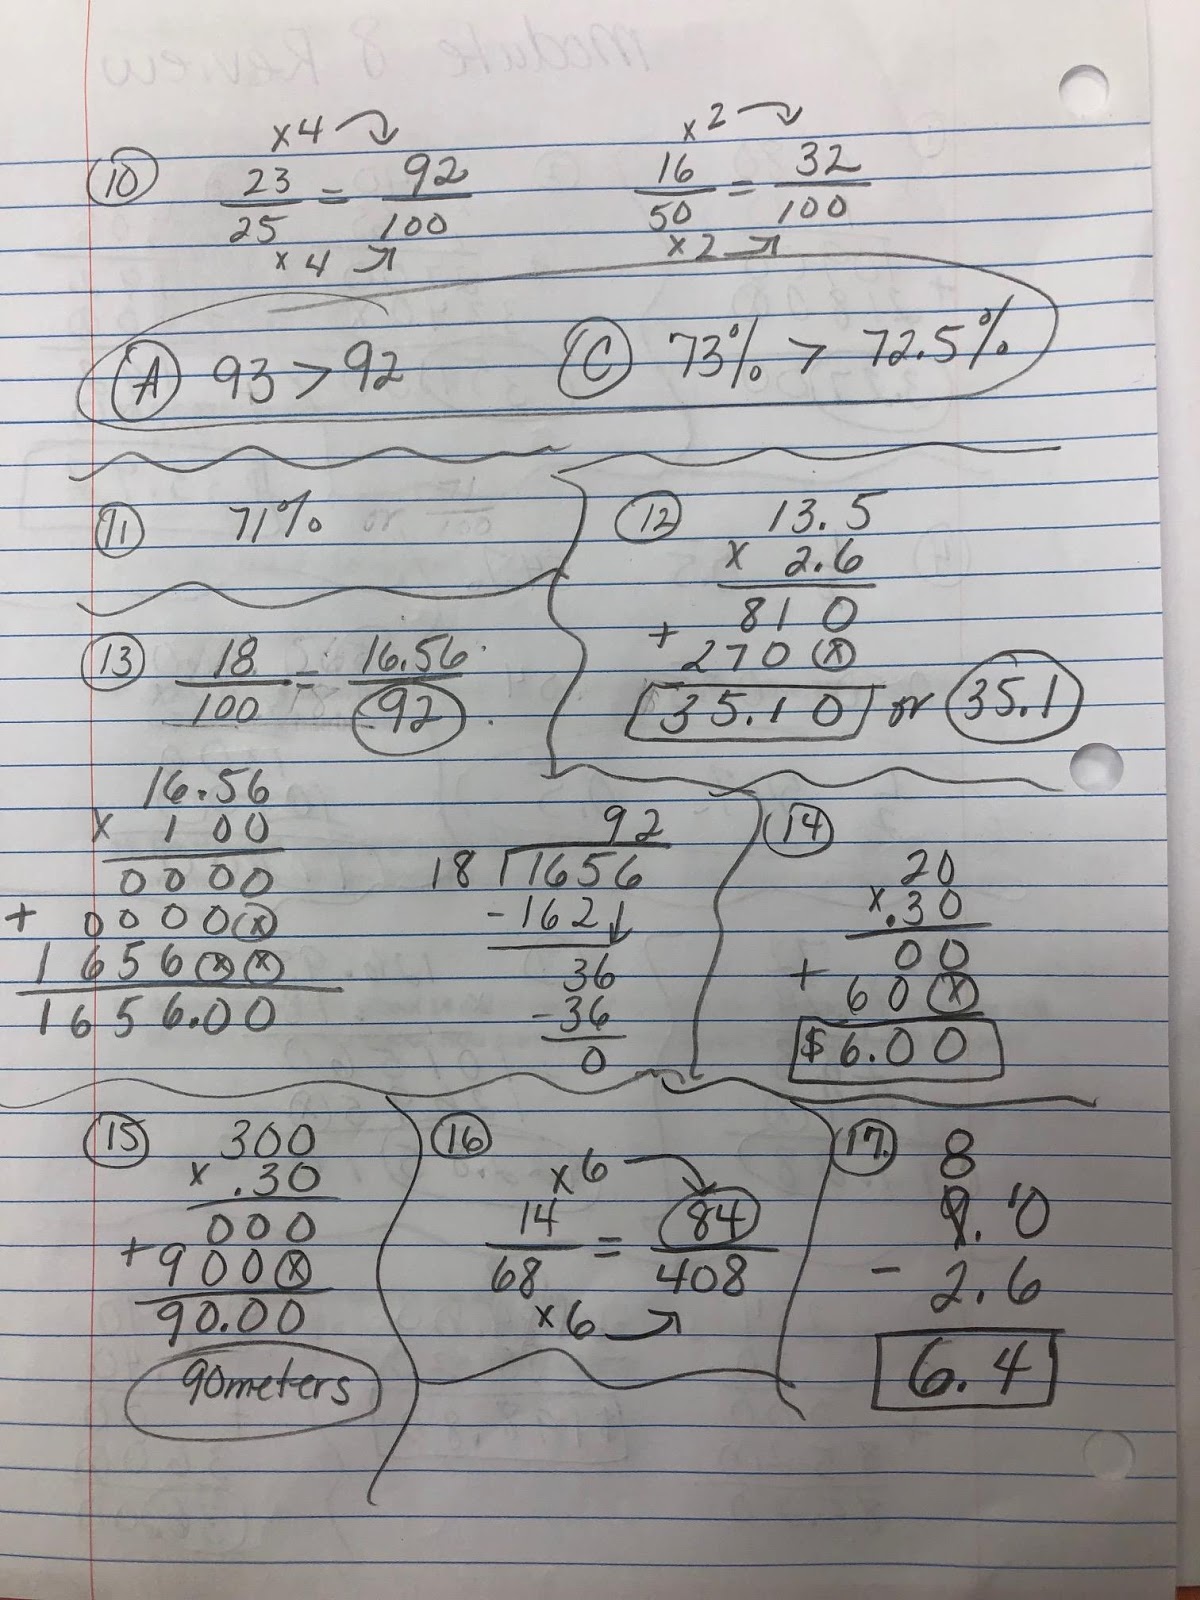 Module 8 Review
×4
×2
10 23/25 = 92/100 16/50 = 32/100
×4 ×2
A 93 > 92 C 73% > 72.5%
11 71%
12 13.5
× 2.6
810
+ 270x
35.10 or 35.1
13 18/100 = 16.56/92
16.56
× 100
0000
+ 0000x
1656xx
1656.00
92
18 1656
-162
36
-36
0
14
20
×.30
00
+ 60x
$6.00
15 300
× .30
000
+ 900x
90.00
90meters
16
×6
14/68 = 84/408
×6
17. 8
9.10
- 2.6
6.4